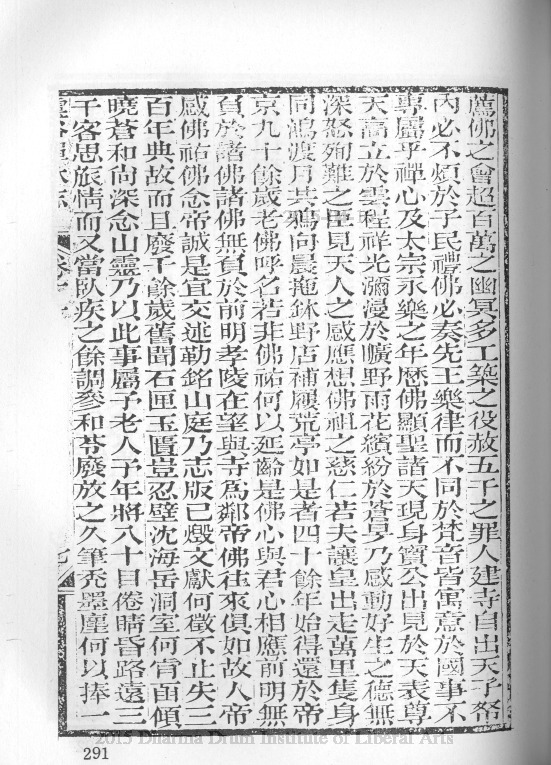 薦佛之會超百萬之幽冥多工築之役赦五千之罪人建寺自出天子帑
內必不煩於子民禮佛必奏先王樂律而不同於梵音皆寓意於國事不
專屬乎禪心及太宗永樂之年歷佛顯聖諸天現身寶公出見於天表尊
天高立於雲程祥光瀰漫於曠野雨花繽紛於蒼旻乃感動好生之德無
深怒殉難之臣見天人之感應想佛祖之慈仁若夫讓皇出走萬里隻身
同鴻渡月共鴉向晨拖鉢野店補履荒亭如是者四十餘年始得還於帝
京九十餘歲老佛呼名若非佛祐何以延齡是佛心與君心相應前明無
負於諸佛諸佛無負於前明孝陵在望與寺為鄰帝佛往來俱如故人帝
感佛祐佛念帝誠是宜交述勒銘山庭乃志版已燬文獻何徵不止失三
百年典故而且廢千餘歲舊聞石匣玉匱豈忍壁沈海岳洞室何宵面傾
曉蒼和尚深念山靈乃以此事屬予老人予年將八十目倦睛昏路遠三
千客思旅情而又當臥疾之餘調參和苓廢放之久筆禿墨塵何以捧一
卷
七
291
2015 Dharma Drum Institute of Liberal Arts